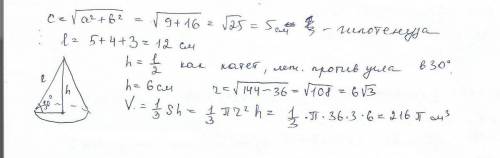 c = √a² + b² = √9 + 16 = √25 = 5 см - гипотенуза
l = 5 + 4 + 3 = 12 см
h = l/2 как катет, леж. против угла в 30°.
h = 6 см r = √144 - 36 = √108 = 6√3
V = 1/3 Sh = 1/3 πr² h = 1/3 · π · 36 · 3 · 6 = 216 π см³
l h 30°